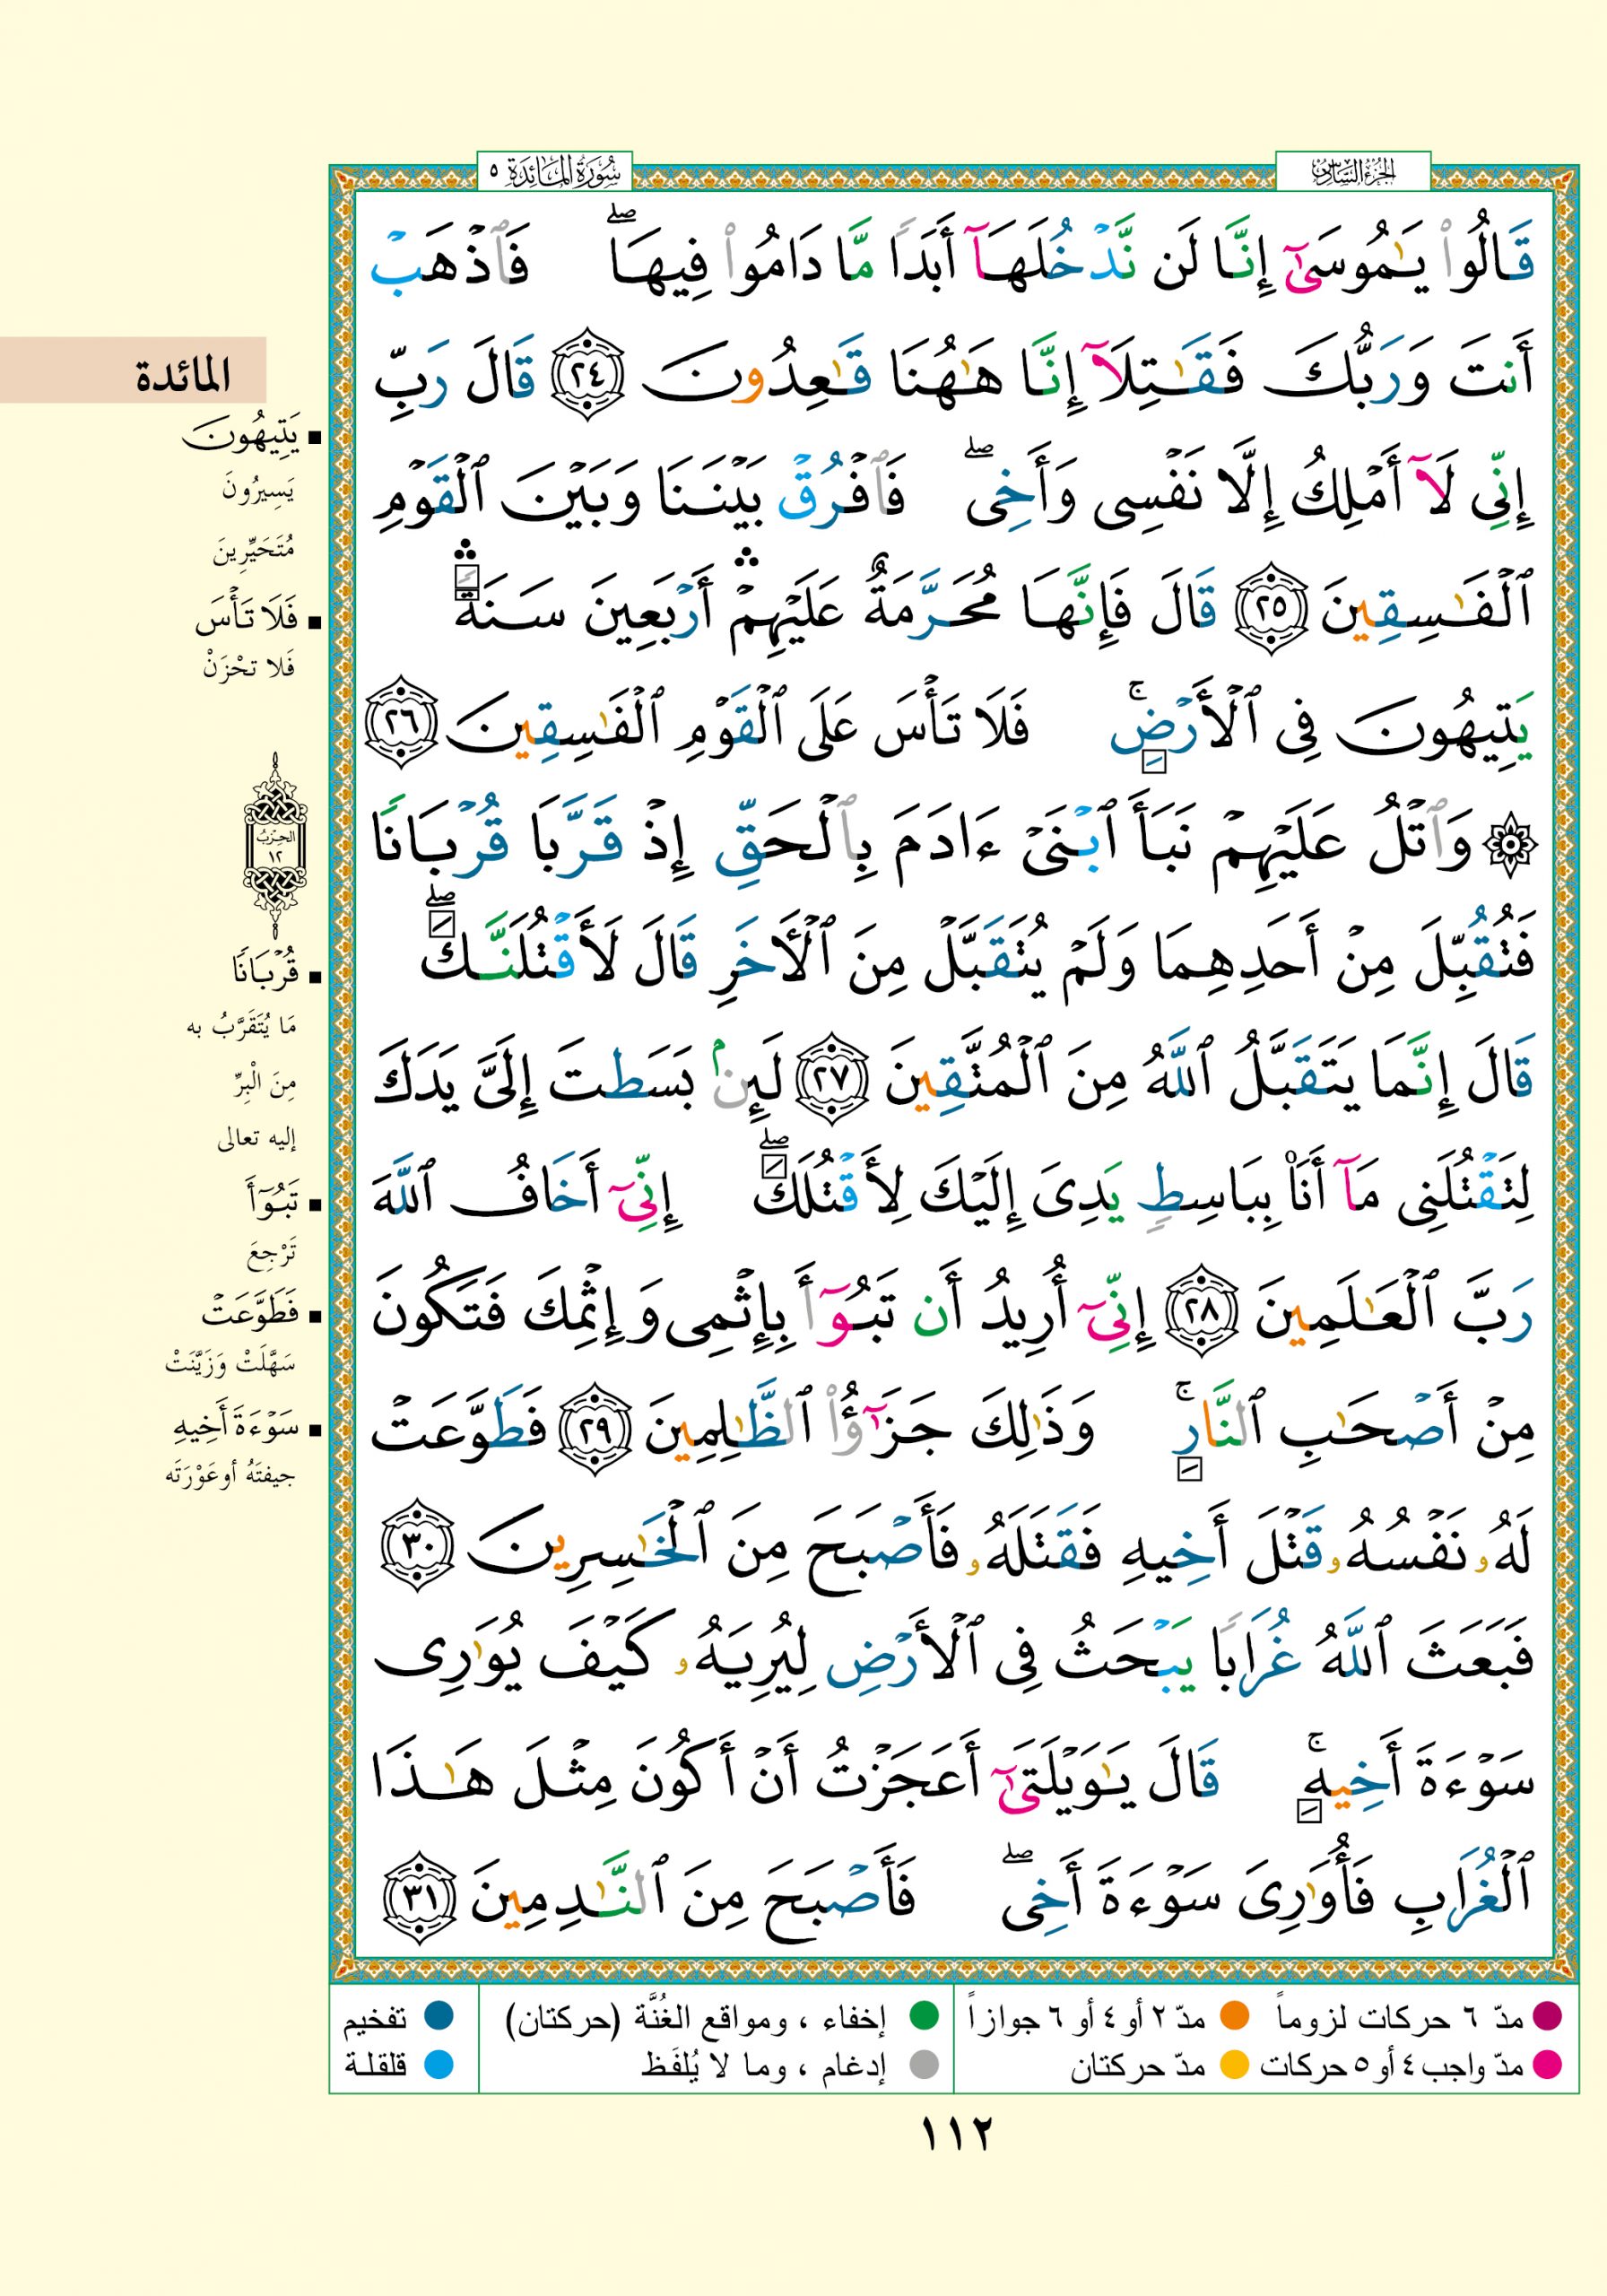 الجزء السادس
سورة المائدة ٥
قَالُوا۟ يَـٰمُوسَىٰٓ إِنَّا لَن نَّدْخُلَهَآ أَبَدًا مَّا دَامُوا۟ فِيهَا ۖ فَٱذْهَبْ
أَنتَ وَرَبُّكَ فَقَـٰتِلَآ إِنَّا هَـٰهُنَا قَـٰعِدُونَ ٢٤ قَالَ رَبِّ
إِنِّى لَآ أَمْلِكُ إِلَّا نَفْسِى وَأَخِى ۖ فَٱفْرُقْ بَيْنَنَا وَبَيْنَ ٱلْقَوْمِ
ٱلْفَـٰسِقِينَ ٢٥ قَالَ فَإِنَّهَا مُحَرَّمَةٌ عَلَيْهِمْ ۛ أَرْبَعِينَ سَنَةً ۛ
يَتِيهُونَ فِى ٱلْأَرْضِ ۚ فَلَا تَأْسَ عَلَى ٱلْقَوْمِ ٱلْفَـٰسِقِينَ ٢٦
۞ وَٱتْلُ عَلَيْهِمْ نَبَأَ ٱبْنَىْ ءَادَمَ بِٱلْحَقِّ إِذْ قَرَّبَا قُرْبَانًا
فَتُقُبِّلَ مِنْ أَحَدِهِمَا وَلَمْ يُتَقَبَّلْ مِنَ ٱلْـَٔاخَرِ قَالَ لَأَقْتُلَنَّكَ ۖ
قَالَ إِنَّمَا يَتَقَبَّلُ ٱللَّهُ مِنَ ٱلْمُتَّقِينَ ٢٧ لَئِنۢ بَسَطتَ إِلَىَّ يَدَكَ
لِتَقْتُلَنِى مَآ أَنَا۠ بِبَاسِطٍ يَدِىَ إِلَيْكَ لِأَقْتُلَكَ ۖ إِنِّىٓ أَخَافُ ٱللَّهَ
رَبَّ ٱلْعَـٰلَمِينَ ٢٨ إِنِّىٓ أُرِيدُ أَن تَبُوٓأَ بِإِثْمِى وَإِثْمِكَ فَتَكُونَ
مِنْ أَصْحَـٰبِ ٱلنَّارِ ۚ وَذَٰلِكَ جَزَٰٓؤُا۟ ٱلظَّـٰلِمِينَ ٢٩ فَطَوَّعَتْ
لَهُۥ نَفْسُهُۥ قَتْلَ أَخِيهِ فَقَتَلَهُۥ فَأَصْبَحَ مِنَ ٱلْخَـٰسِرِينَ ٣٠
فَبَعَثَ ٱللَّهُ غُرَابًا يَبْحَثُ فِى ٱلْأَرْضِ لِيُرِيَهُۥ كَيْفَ يُوَٰرِى
سَوْءَةَ أَخِيهِ ۚ قَالَ يَـٰوَيْلَتَىٰٓ أَعَجَزْتُ أَنْ أَكُونَ مِثْلَ هَـٰذَا
ٱلْغُرَابِ فَأُوَٰرِىَ سَوْءَةَ أَخِى ۖ فَأَصْبَحَ مِنَ ٱلنَّـٰدِمِينَ ٣١
المائدة
▪ يَتِيهُونَ
يَسِيرُونَ
مُتَحَيِّرِينَ
▪ فَلَا تَأْسَ
فَلا تَحْزَنْ
الحِزْبُ
١٢
▪ قُرْبَانًا
مَا يُتَقَرَّبُ به
مِنَ الْبِرِّ
إليه تعالى
▪ تَبُوٓأَ
تَرْجِعَ
▪ فَطَوَّعَتْ
سَهَّلَتْ وَزَيَّنَتْ
▪ سَوْءَةَ أَخِيهِ
جيفتَهُ أو عَوْرَتَه
● مدّ ٦ حركات لزوماً ● مدّ ٢ أو ٤ أو ٦ جوازاً ● إخفاء ، ومواقع الغُنَّة (حركتان) ● تفخيم
● مدّ واجب ٤ أو ٥ حركات ● مدّ حركتان ● إدغام ، وما لا يُلفَظ ● قلقلة
١١٢